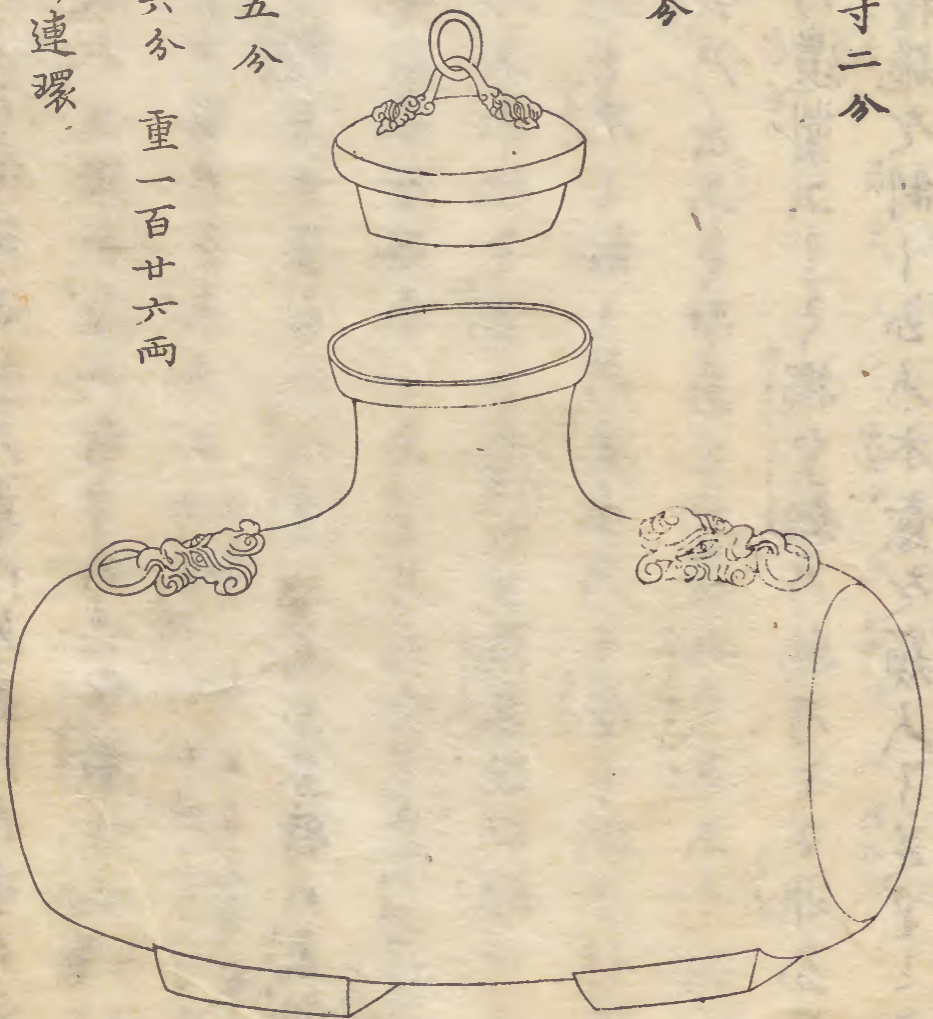 寸二分
分
五分
六分 重一百廿六兩
連環